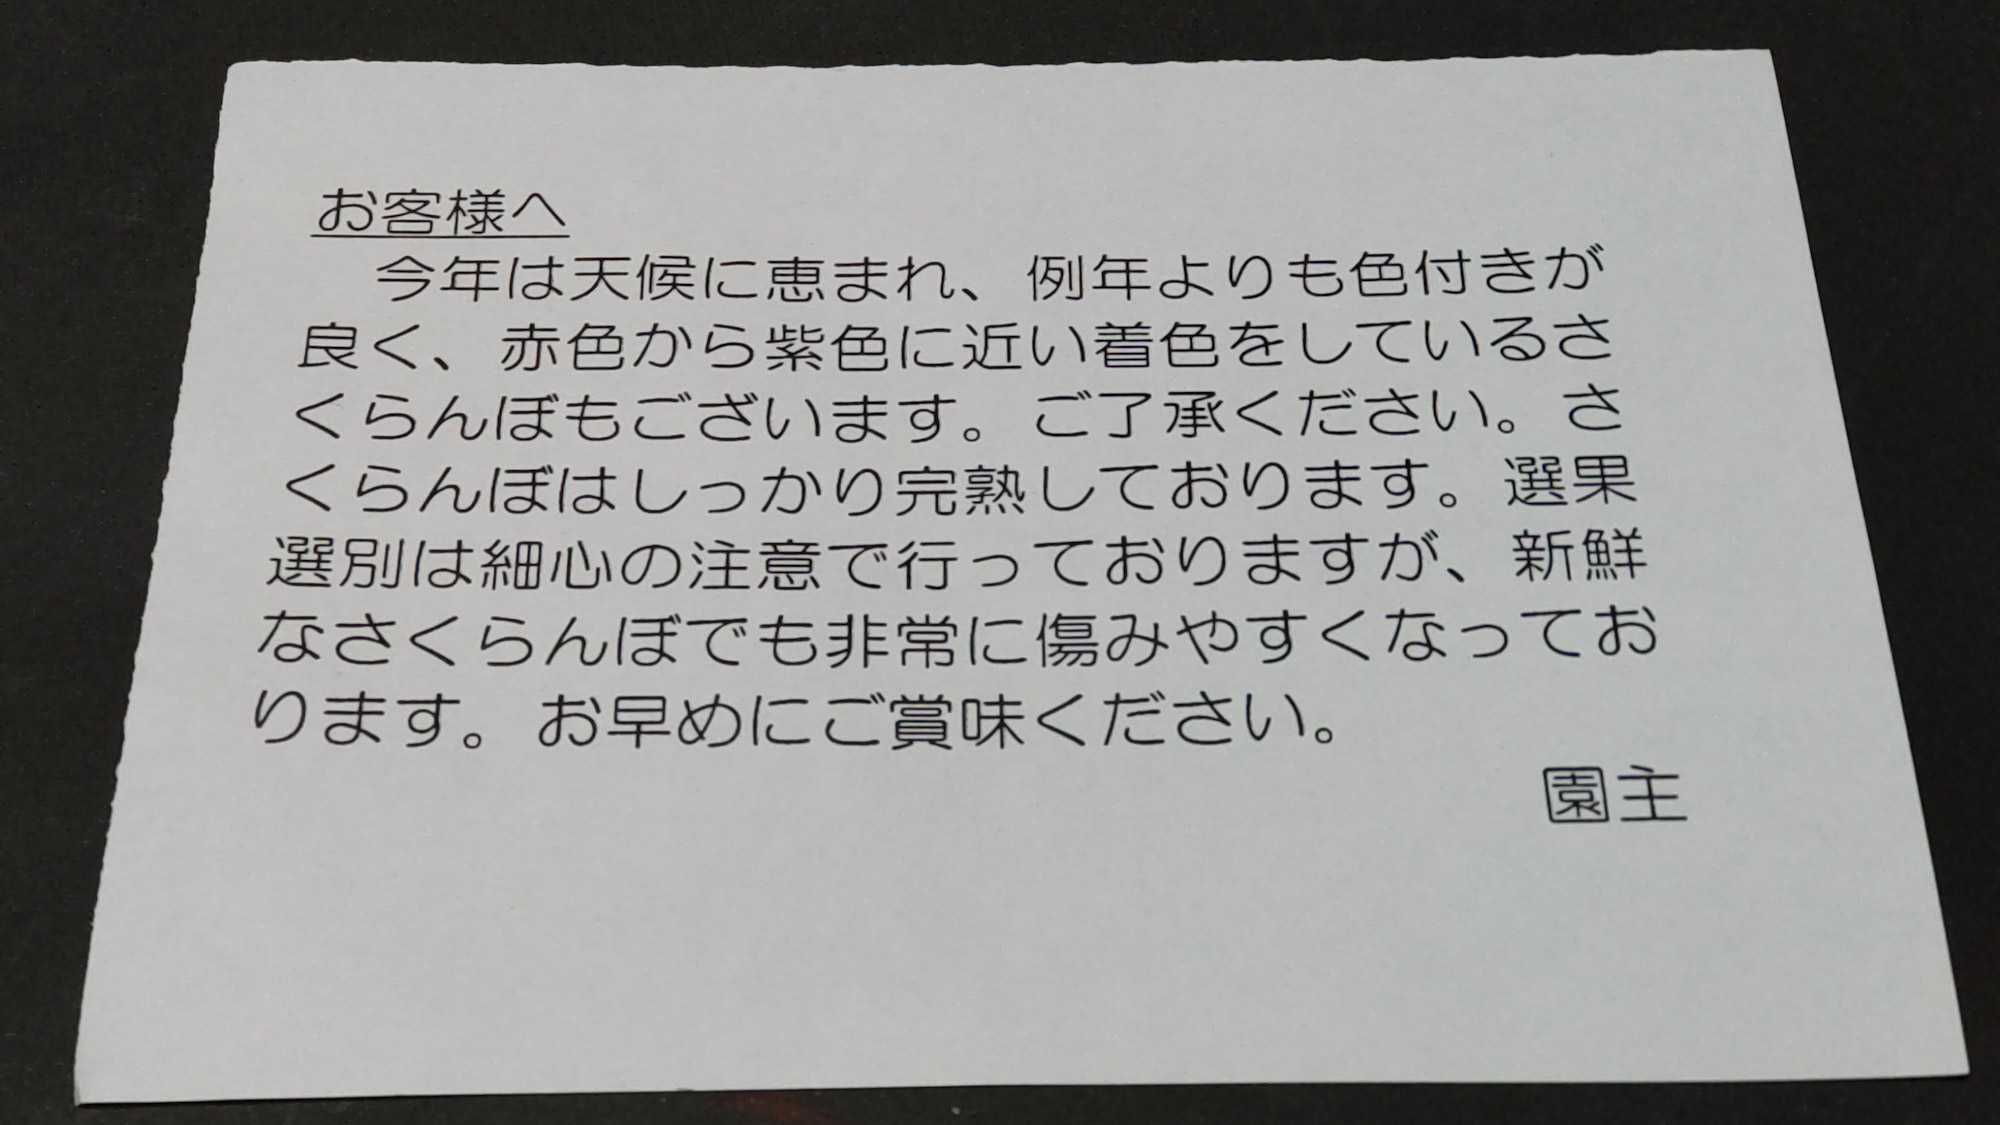 お客様へ
　今年は天候に恵まれ、例年よりも色付きが
良く、赤色から紫色に近い着色をしているさ
くらんぼもございます。ご了承ください。さ
くらんぼはしっかり完熟しております。選果
選別は細心の注意で行っておりますが、新鮮
なさくらんぼでも非常に傷みやすくなってお
ります。お早めにご賞味ください。
園主